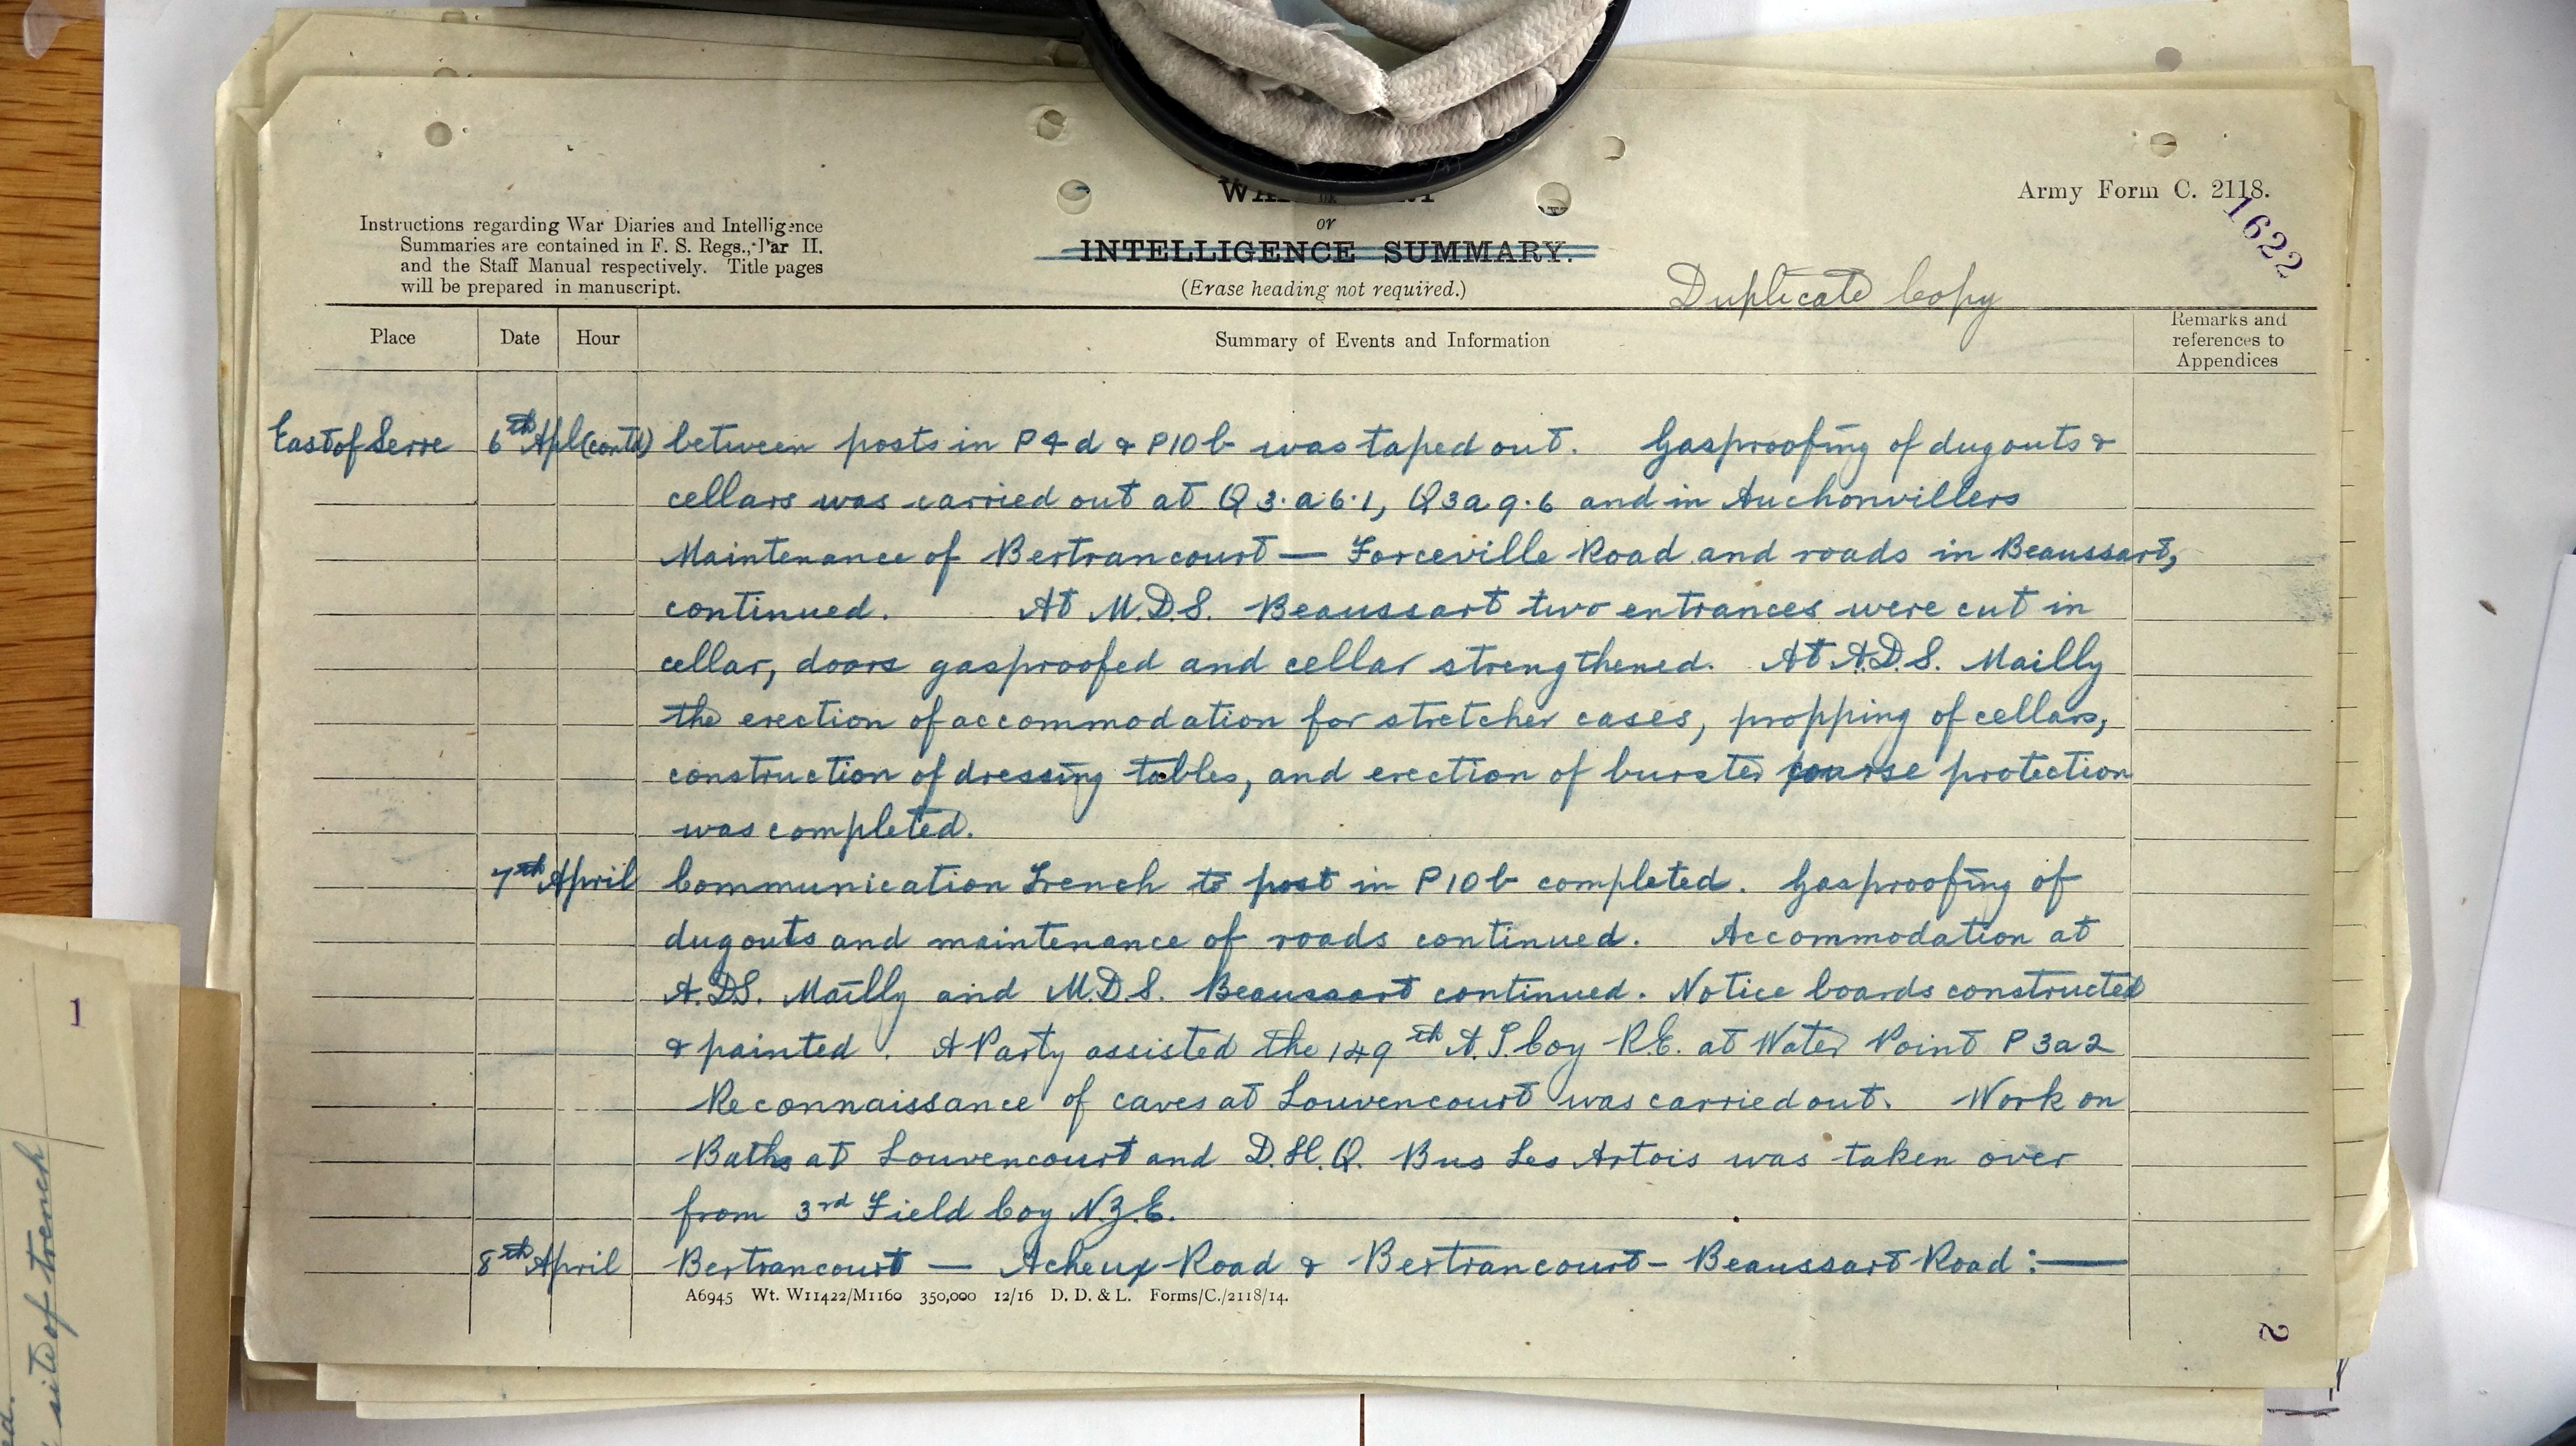 Army Form C. 2118.
1622
Instructions regarding War Diaries and Intelligence
Summaries are contained in F. S. Regs., Par II.
and the Staff Manual respectively. Title pages
will be prepared in manuscript.
or
INTELLIGENCE SUMMARY.
(Erase heading not required.)
Duplicate Copy
Place Date Hour Summary of Events and Information Remarks and references to Appendices
East of Serre 6th Apl (contd) between posts in P4d & P10b was taped out. Gasproofing of dugouts &
cellars was carried out at Q3.a.6.1, Q3a9.6 and in Auchonvillers
Maintenance of Bertrancourt — Forceville Road and roads in Beaussart,
continued. At M.D.S. Beaussart two entrances were cut in
cellar, doors gasproofed and cellar strengthened. At A.D.S. Mailly
the erection of accommodation for stretcher cases, propping of cellars,
construction of dressing tables, and erection of burster course protection
was completed.
7th April Communication Trench to post in P10b completed. Gasproofing of
dugouts and maintenance of roads continued. Accommodation at
A.D.S. Mailly and M.D.S. Beaussart continued. Notice boards constructed
& painted. A Party assisted the 149th A.T. Coy R.E. at Water Point P3a2
Reconnaissance of caves at Louvencourt was carried out. Work on
Baths at Louvencourt and D.H.Q. Bus Les Artois was taken over
from 3rd Field Coy N.Z.E.
8th April Bertrancourt — Acheux Road & Bertrancourt - Beaussart Road :—
A6945 Wt. W11422/M1160 350,000 12/16 D. D. & L. Forms/C./2118/14.
2
1
site of trench